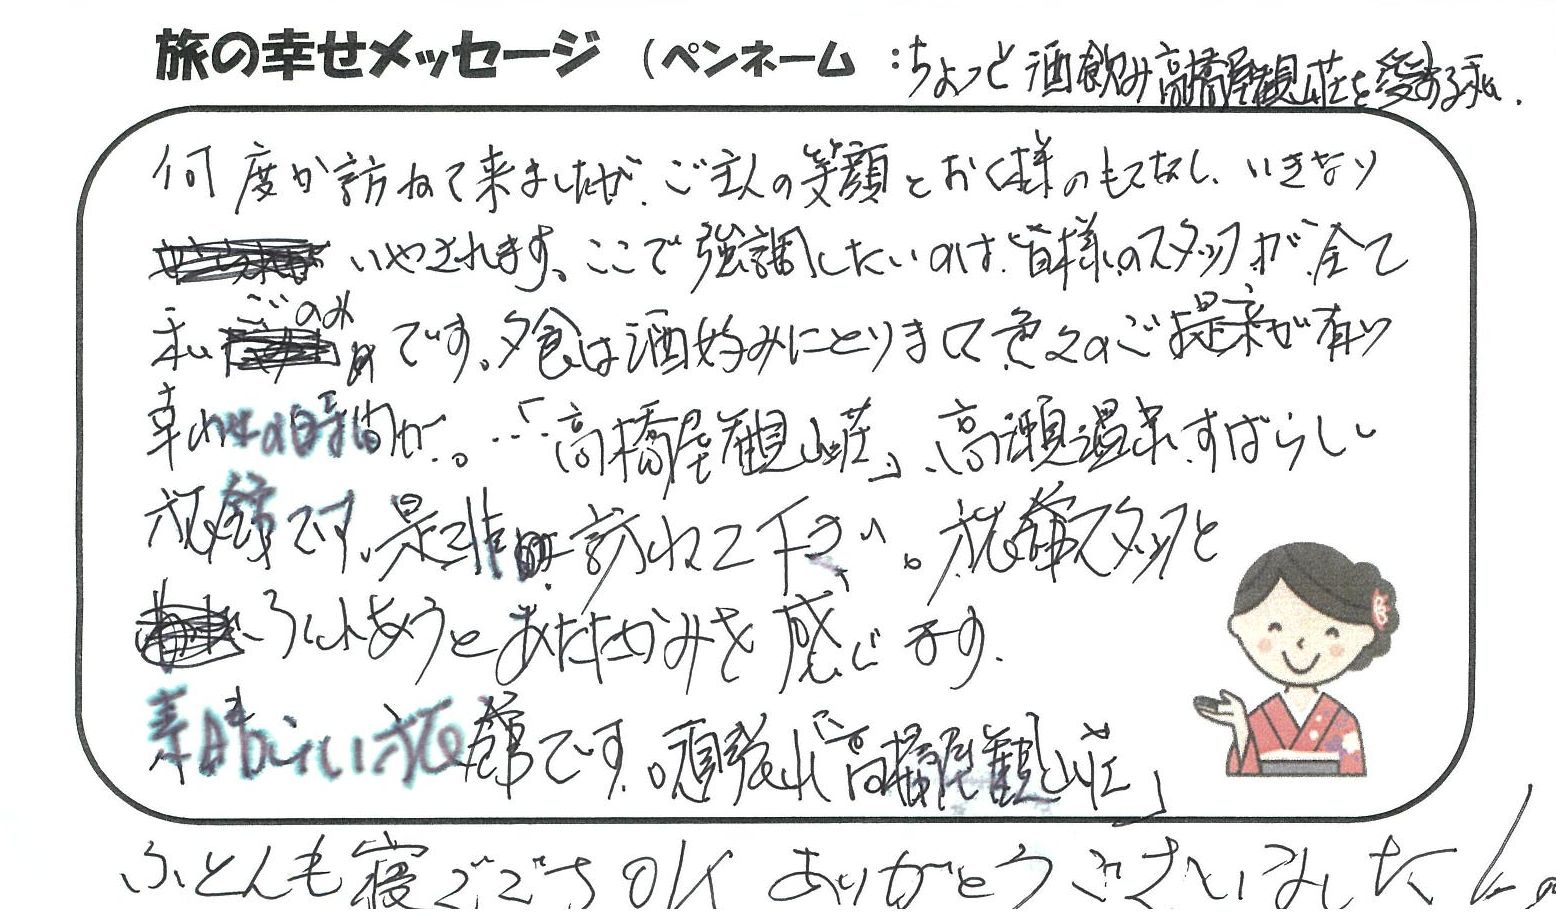 旅の幸せメッセージ (ペンネーム :ちょっと酒飲み高橋屋観山荘を愛する私.
何度か訪ねて来ましたが、ご主人の笑顔とおく様のもてなし、いきなり
いやされます。ここで強調したいのは、皆様のスタッフが全て
私ごのみです。夕食は酒好みにとりまして色々のご提案が有り
幸わせの時間が。…「高橋屋観山荘」、高瀬温泉、すばらしい
旅館です。是非訪ねて下さい。旅館スタッフと
ふれあうとあたたかみを感じます。
素晴らしい旅館です。頑張れ「高橋屋観山荘」
ふとんも寝ごこちOK ありがとうございました